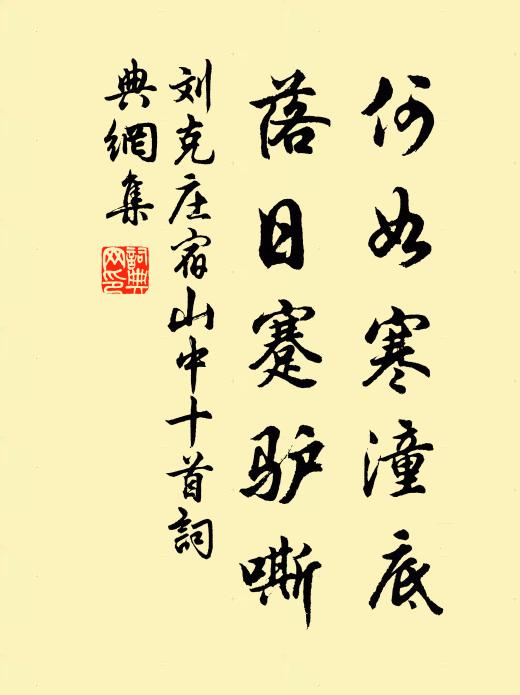 何如寒潼底
落日蹇驴嘶
刘克庄宿山中十首詞
典網集
詞典
网印